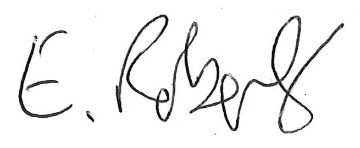 E. Roberts